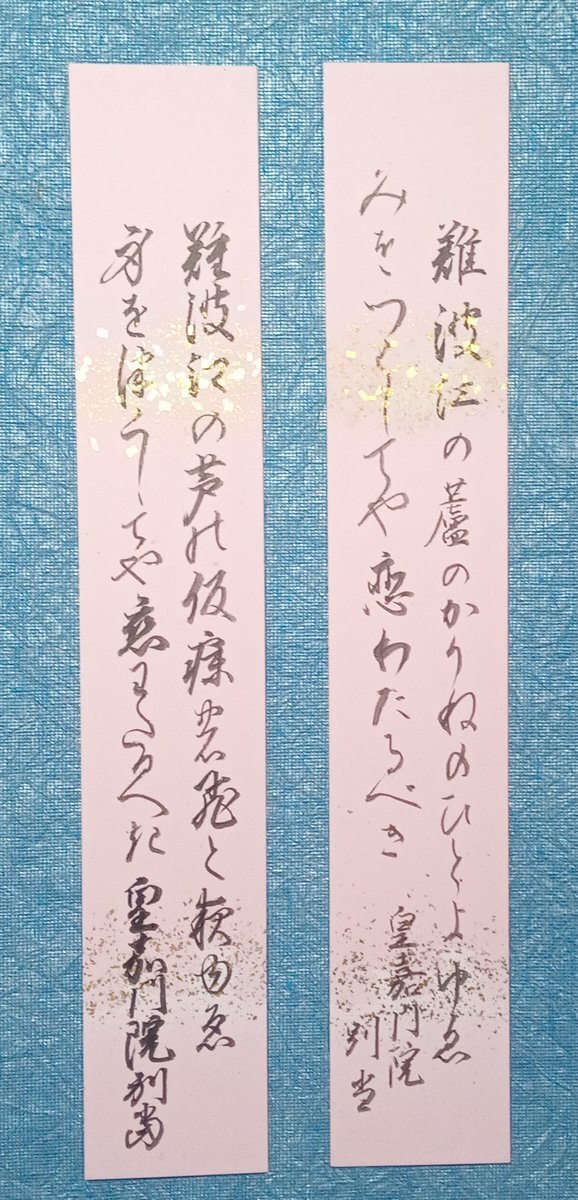 難波江の蘆のかりねのひとよゆゑ
みをつくしてや恋わたるべき
皇嘉門院
別当
難波江の芦能仮寐農飛と夜由恵
身を津くしてや恋王たるへき 皇嘉門院別当